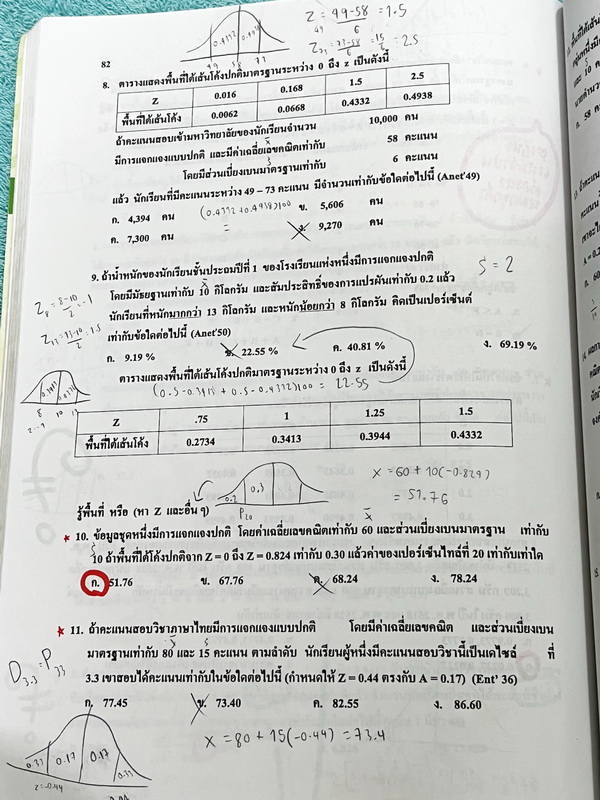 Z = 49-58 = 1.5
49 6
0.4332 0.4938
49 58 73
Z73 = 73-58 = 15 = 2.5
6 6
82
8. ตารางแสดงพื้นที่ใต้เส้นโค้งปกติมาตรฐานระหว่าง 0 ถึง z เป็นดังนี้
Z 0.016 0.168 1.5 2.5
พื้นที่ใต้เส้นโค้ง 0.0062 0.0668 0.4332 0.4938
ถ้าคะแนนสอบเข้ามหาวิทยาลัยของนักเรียนจำนวน 10,000 คน
มีการแจกแจงแบบปกติ และมีค่าเฉลี่ยเลขคณิตเท่ากับ 58 คะแนน
โดยมีส่วนเบี่ยงเบนมาตรฐานเท่ากับ 6 คะแนน
แล้ว นักเรียนที่มีคะแนนระหว่าง 49 – 73 คะแนน มีจำนวนเท่ากับข้อใดต่อไปนี้ (Anet'49)
ก. 4,394 คน (0.4332+0.4938)100 ข. 5,606 คน
ค. 7,300 คน = ง. 9,270 คน
9. ถ้าน้ำหนักของนักเรียนชั้นประถมปีที่ 1 ของโรงเรียนแห่งหนึ่งมีการแจกแจงปกติ S = 2
Z8 = 8-10 = -1 โดยมีมัธยฐานเท่ากับ 10 กิโลกรัม และสัมประสิทธิ์ของการแปรผันเท่ากับ 0.2 แล้ว
2 นักเรียนที่หนักมากกว่า 13 กิโลกรัม และหนักน้อยกว่า 8 กิโลกรัม คิดเป็นเปอร์เซ็นต์
Z13 = 13-10 = 1.5 เท่ากับข้อใดต่อไปนี้ (Anet'50)
2
ก. 9.19 % ข. 22.55 % ค. 40.81 % ง. 69.19 %
ตารางแสดงพื้นที่ใต้เส้นโค้งปกติมาตรฐานระหว่าง 0 ถึง z เป็นดังนี้
(0.5-0.3413 + 0.5-0.4332)100 = 22.55
8 10 13
Z .75 1 1.25 1.5
พื้นที่ใต้เส้นโค้ง 0.2734 0.3413 0.3944 0.4332
x = 60 + 10(-0.824)
= 51.76
0.2 0.3
รู้พื้นที่ หรือ (หา Z และอื่น ๆ) P20 x̄
* 10. ข้อมูลชุดหนึ่งมีการแจกแจงปกติ โดยค่าเฉลี่ยเลขคณิตเท่ากับ 60 และส่วนเบี่ยงเบนมาตรฐาน เท่ากับ
10 ถ้าพื้นที่ใต้โค้งปกติจาก Z = 0 ถึง Z = 0.824 เท่ากับ 0.30 แล้วค่าของเปอร์เซ็นไทล์ที่ 20 เท่ากับเท่าใด
ก. 51.76 ข. 67.76 ค. 68.24 ง. 78.24
* 11. ถ้าคะแนนสอบวิชาภาษาไทยมีการแจกแจงแบบปกติ โดยมีค่าเฉลี่ยเลขคณิต และส่วนเบี่ยงเบน
มาตรฐานเท่ากับ 80 และ 15 คะแนน ตามลำดับ นักเรียนผู้หนึ่งมีคะแนนสอบวิชานี้เป็นเดไซล์ ที่
D3.3 = P33 3.3 เขาสอบได้คะแนนเท่ากับในข้อใดต่อไปนี้ (กำหนดให้ Z = 0.44 ตรงกับ A = 0.17) (Ent' 36)
ก. 77.45 ข. 73.40 ค. 82.55 ง. 86.60
x = 80 + 15(-0.44) = 73.4
0.33 0.17 0.17 0.33
z = -0.44